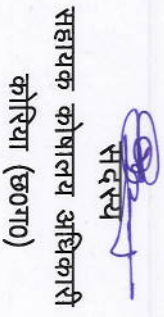 सदस्य
सहायक कोषालय अधिकारी
कोरिया (छ०ग०)